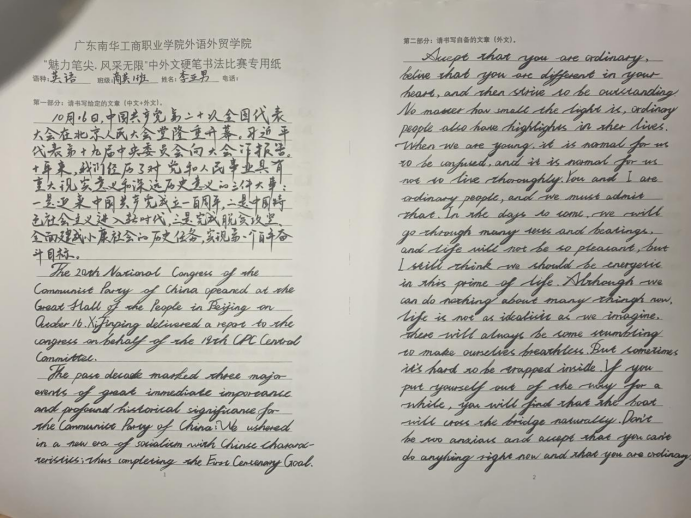 广东南华工商职业学院外语外贸学院
“魅力笔尖,风采无限”中外文硬笔书法比赛专用纸
语种:英语 班级:商英1班 姓名:李亚男 电话:
第一部分:请书写给定的文章(中文+外文)。
10月16日,中国共产党第二十次全国代表
大会在北京人民大会堂隆重开幕。习近平
代表第十九届中央委员会向大会作报告。
十年来,我们经历了对党和人民事业具有
重大现实意义和深远历史意义的三件大事:
一是迎来中国共产党成立一百周年,二是中国特
色社会主义进入新时代,三是完成脱贫攻坚、
全面建成小康社会的历史任务,实现第一个百年奋
斗目标。
The 20th National Congress of the
Communist Party of China opeared at the
Great Hall of the People in Beijing on
Octber 16. XiJinping delivered a report to the
congress on behalf of the 19th CPC Central
Committee.
The pase decade marked three major
events of great immediate importance
and profound historical significance for
the Communist Party of China: We ushered
in a new era of socialism with Chinse charac-
teristics; thus completing the First Centenary Goal.
1
第二部分:请书写自备的文章(外文)。
Accept that you are ordinary,
belive that you are different in your
heart, and then strive to be outstanding
No matter how small the light is, ordinary
people also have highlights in ther lives.
When we are young, it is normal for us
to be confused, and it is normal for us
not to live thoroughly. You and I are
ordinary people, and we must admit
that. In the days to come, we will
go through many and beatings,
and life will not be so pleasant, but
I still think we should be energetic
in this prime of life. Although we
can do nothing about many thingh now,
life is not as idealise as we imagine,
there will always be some stumbling
to make ourselves breathless. But sometimes
it's hard to be trapped inside. If you
put yourself out of the way for a
while, you will find that the boat
will cross the bridge naturally. Don't
be two anxious and accept that you can't
do anything right now and that you are ordinary.
2